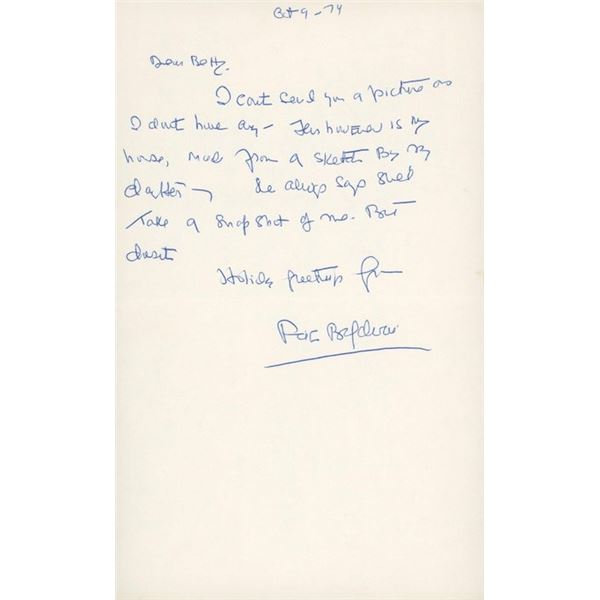 Oct 9 - 74
Dear Betty.
I cant send you a picture as
I dont have any - This however is my
house, made from a sketch By my
daughter - She always says shed
Take a snapshot of me. But
doesnt
Holiday greetings from
Faith Baldwin